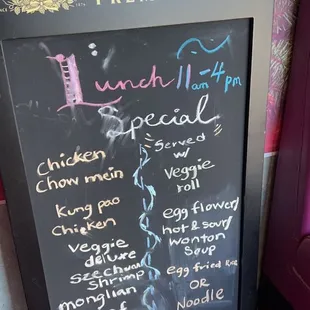 Lunch 11am-4pm
Special
Chicken
Chow mein
Kung pao
Chicken
Veggie
deluxe
Szechuan
Shrimp
monglian
Served
w/
Veggie
roll
egg flower/
hot & sour/
Wonton
Soup
egg fried
OR
Noodle